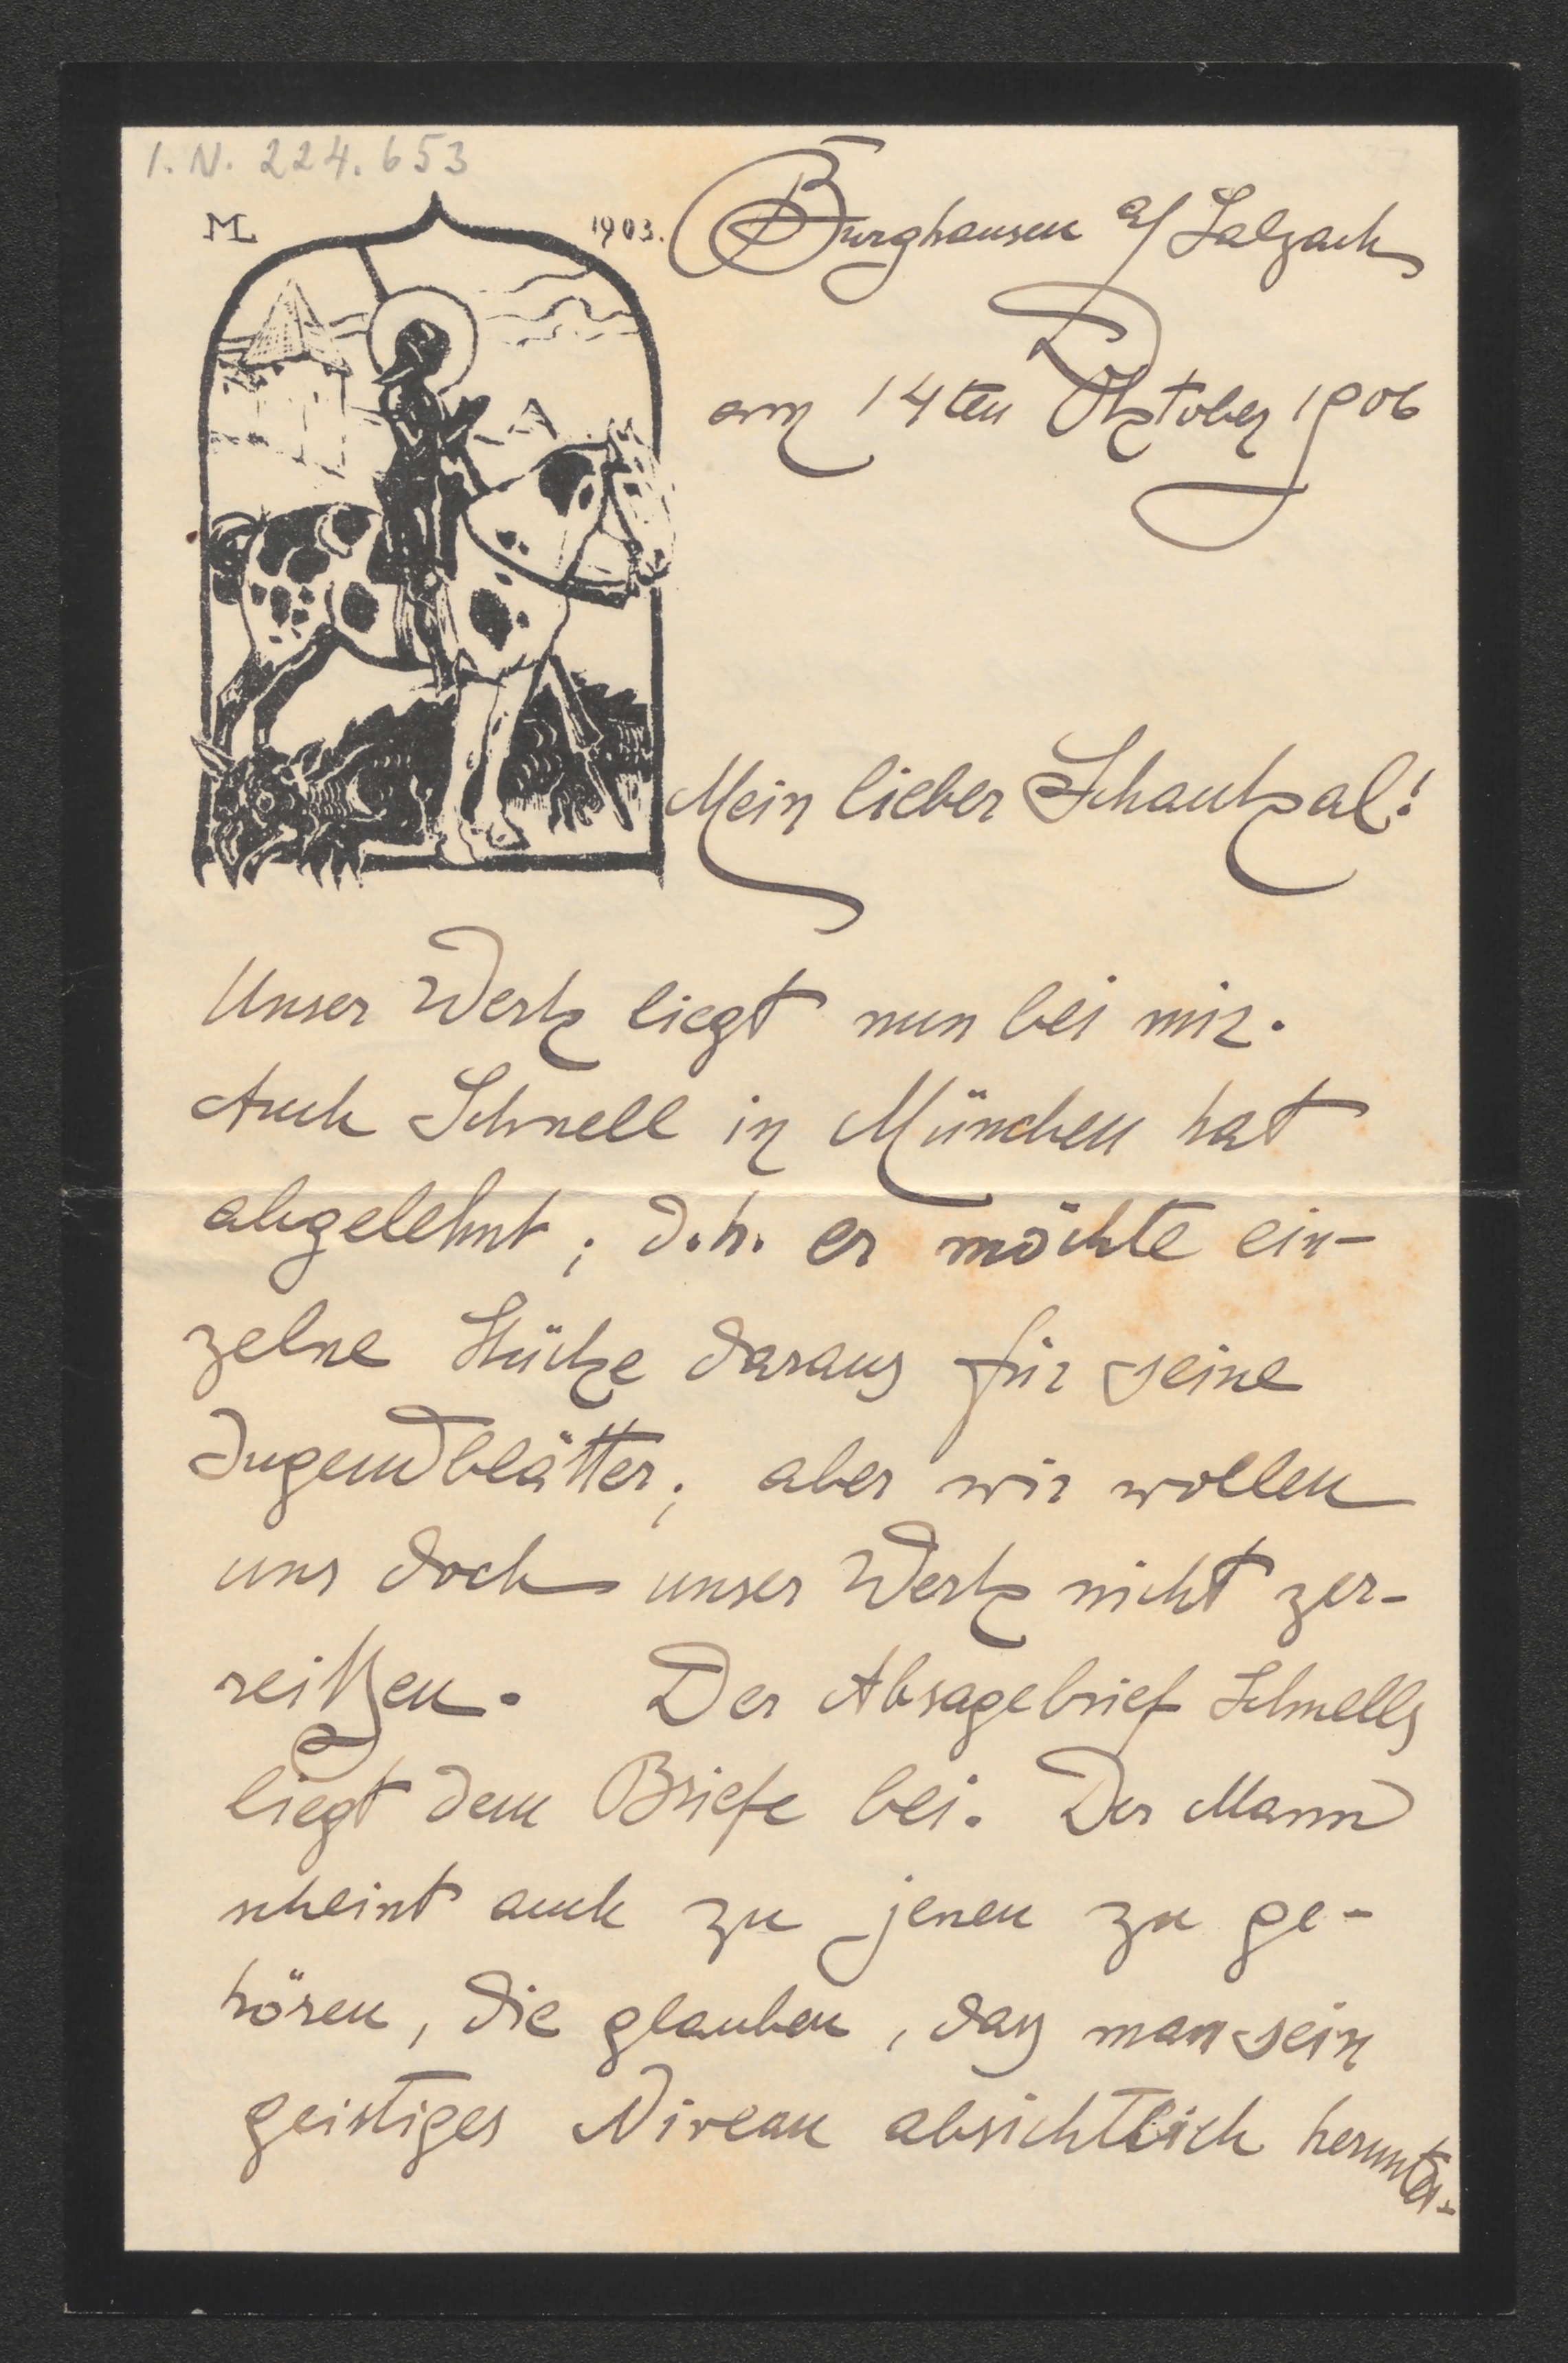 I. N. 224.653
ML 1903.
Burghausen a/Salzach
am 14ten Oktober 1906
Mein lieber Schaukal!
Unser Werk liegt nun bei mir.
Auch Schnell in München hat
abgelehnt; d.h. er möchte ein-
zelne Stücke daraus für seine
Jugendblätter; aber wir wollen
uns doch unser Werk nicht zer-
reißen. Der Absagebrief Schnells
liegt dem Briefe bei. Der Mann
scheint auch zu jenen zu ge-
hören, die glauben, das man sein
geistiges Niveau absichtlich herunter-